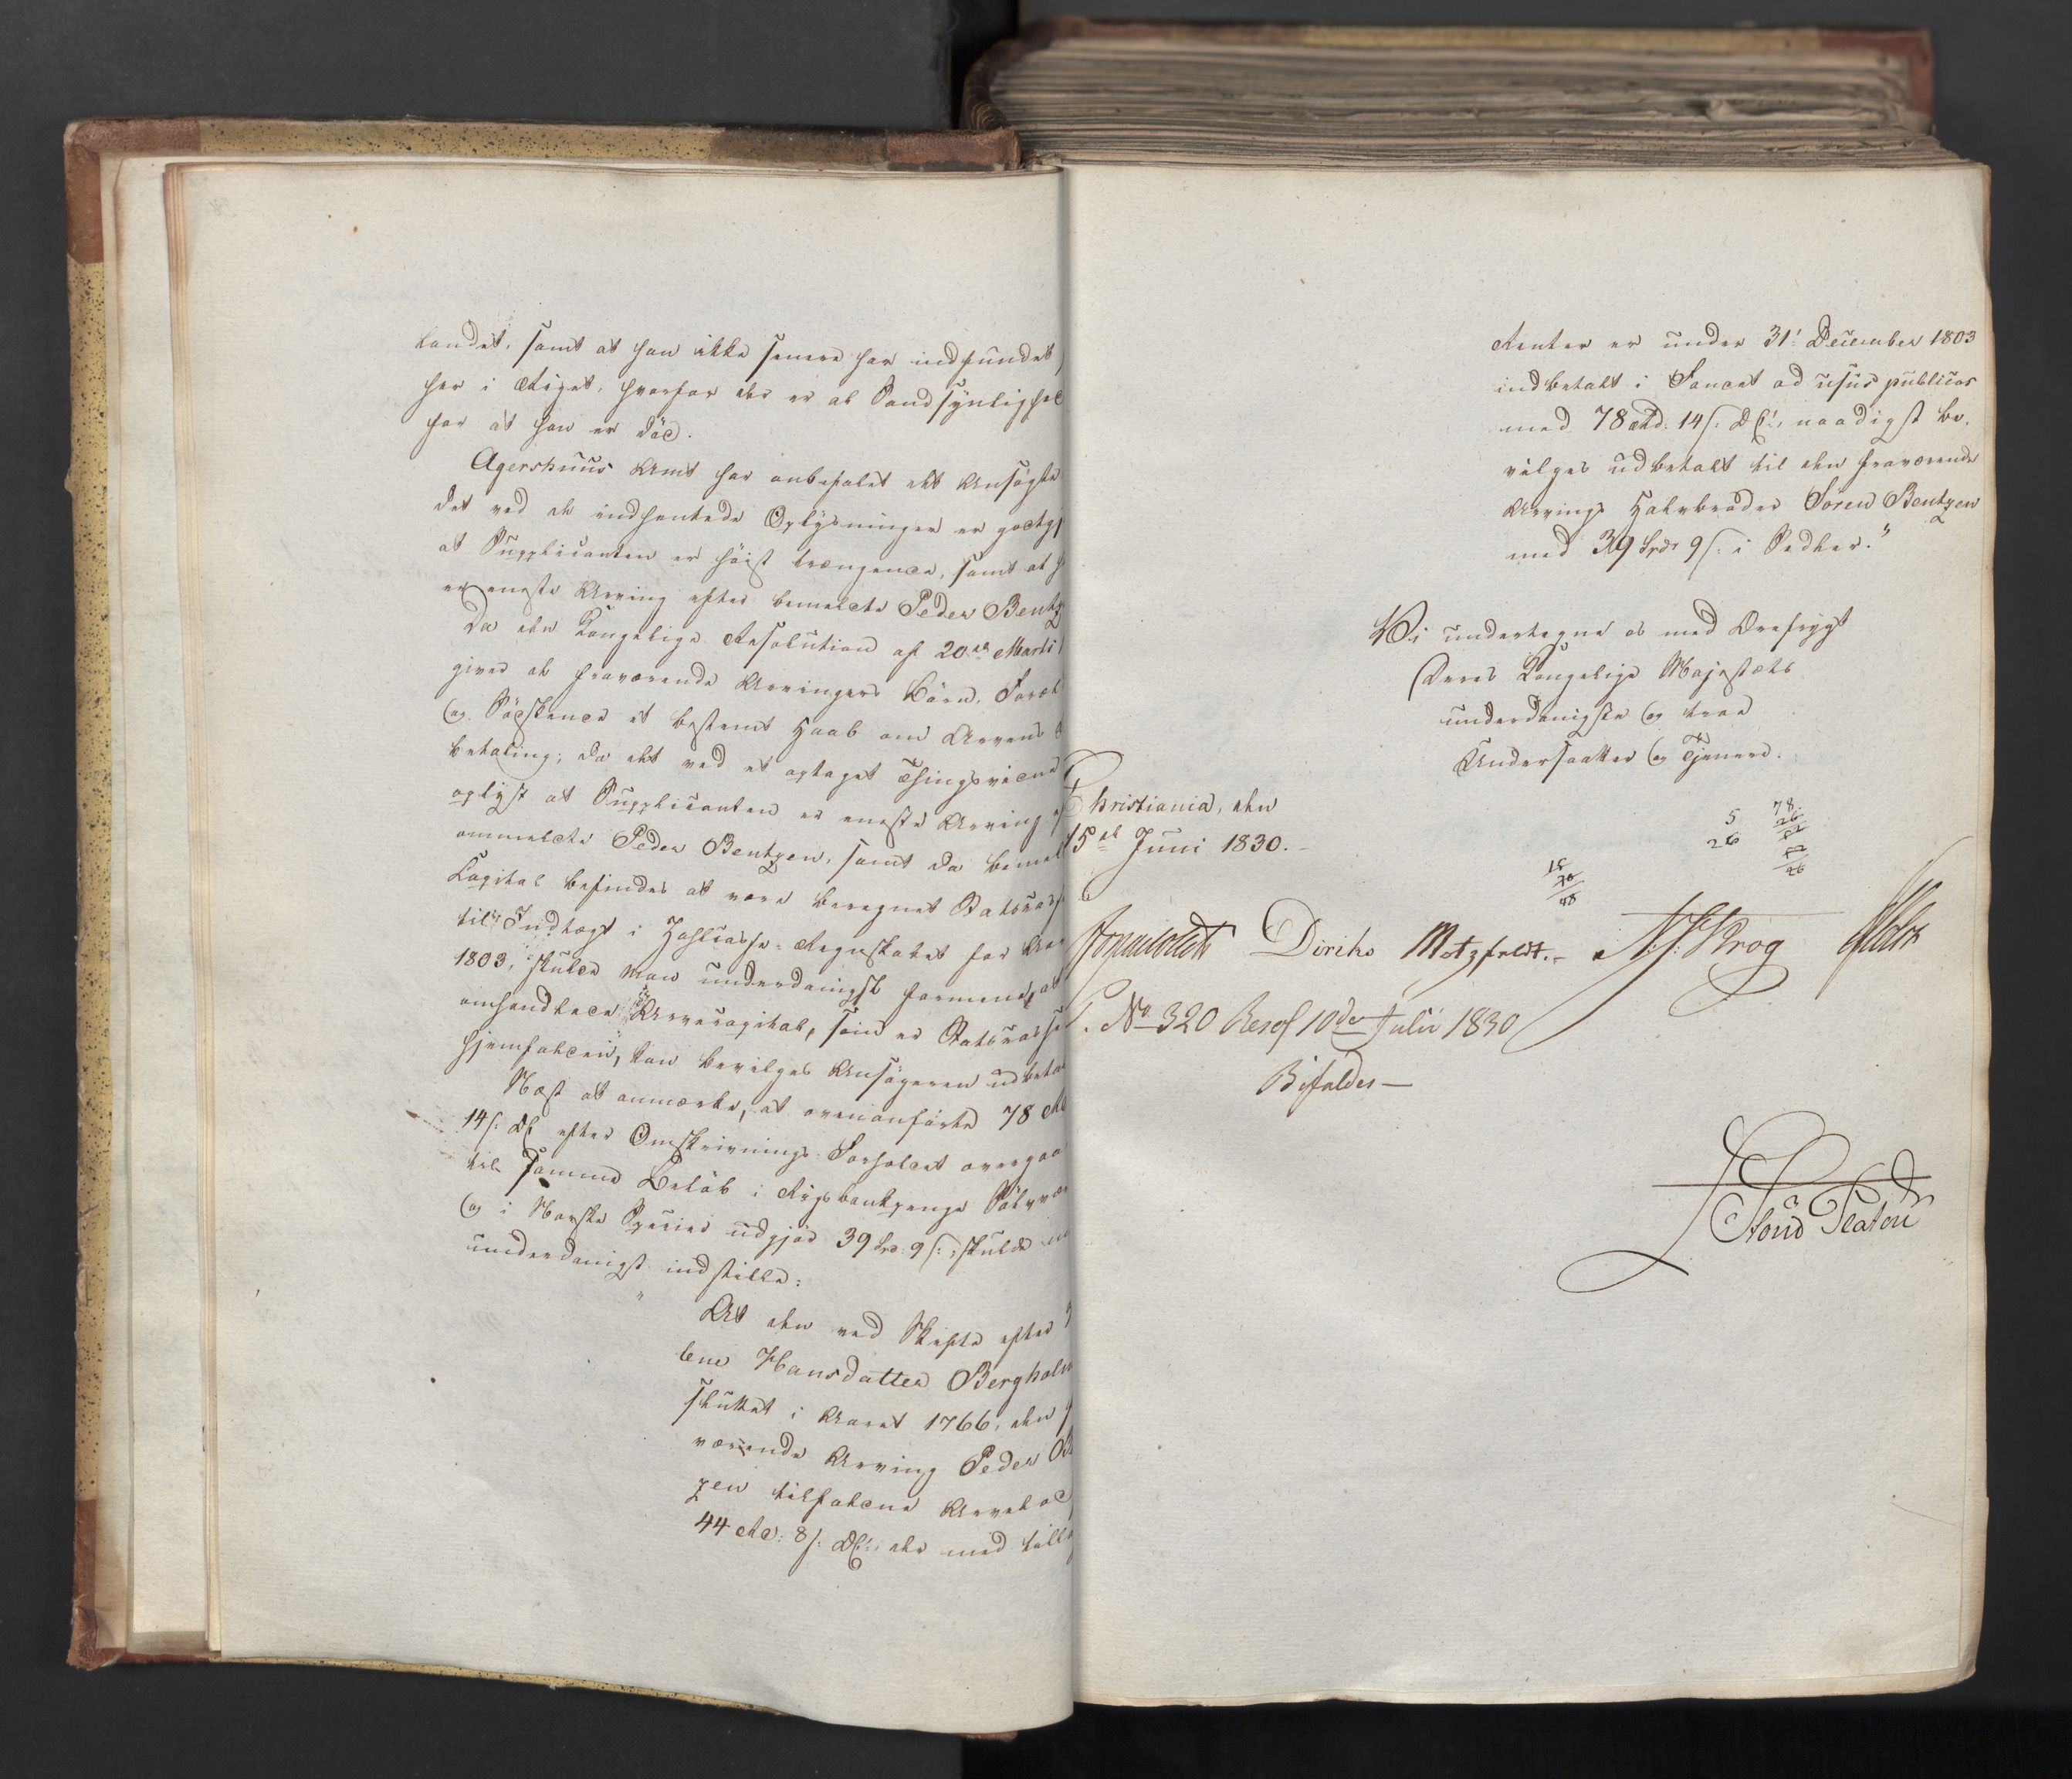 landet, samt at han ikke senere har indfundet
her i Riget, hvorfor der er al Sandsynlighed
for at han er död.
Agershuus Amt har anbefalet det Ansögte
det ved de indhentede Oplysninger er
at Supplicanten er höist trængende, samt at
er eneste Arving efter bemeldte Peder Bentz
Da den Kongelige Resolution af 20de Martii
giver de fraværende Arvingers Börn, Foræl
og Södskende et bestemt Haab om Arvens
betaling; da det ved et optaget Thingsvidne
oplyst at Supplicanten er eneste Arving
ommeldte Peder Bentzen, samt da bemel
Capital befindes at være beregnet Statscass
til Indtægt i Zahlcasse-Regnskabet for Aar
1803, skulde man underdanigst formene, at
omhandlede Arvecapital, som er Statscassen
hjemfalden, kan bevilges Ansögeren udbetal
Næst at anmærke, at ovenanförte 78 Rd
14 s: DC efter Omskrivnings-Forholdet overgaa
til samme Belöb i Rigsbankpenge Sölvvær
og i Norske Species udgjör 39 Spd: 9 s:, skulde
underdanigst indstille:
"At den ved Skifte efter
lene Hansdatter Bergholm
sluttet i Aaret 1766, den
værende Arving Peder Be
zen tilfaldne Arvelod
44 Rd: 8 s: DC:, der med till
Renter er under 31' December 1803
indbetalt i Fonden ad usus publicos
med 78 Rd: 14 s: DC:, naadigst be-
vilges udbetalt til den fraværende
Arvings Halvbroder Sören Bentzen
med 39 Spd: 9 s: i Sedler."
Vi undertegne os med Ærefrygt
Deres Kongelige Majestæts
underdanigste og troe
Undersaatter og Tjenere.
Christiania, den
15de Juni 1830.
5
26
78
26
Diriks Motzfeldt. N. J. Krog
No 320 Resol 10de Julii 1830
Bifaldes